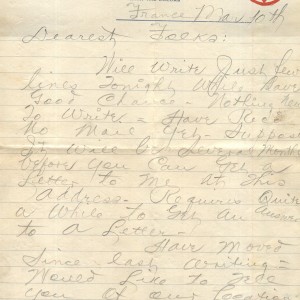 France Mar 10th
Dearest Folks:
Will Write Just few
lines Tonight While have
Good Chance - Nothing New
To Write - Have Rec'd
No Mail Yet - Suppose
It Will be Several Months
before you Can Get a
Letter to Me at This
Address - Requires Quite
a While to Get an Answer
to A Letter -
Have Moved
Since last Writing -
Would Like to
you of our